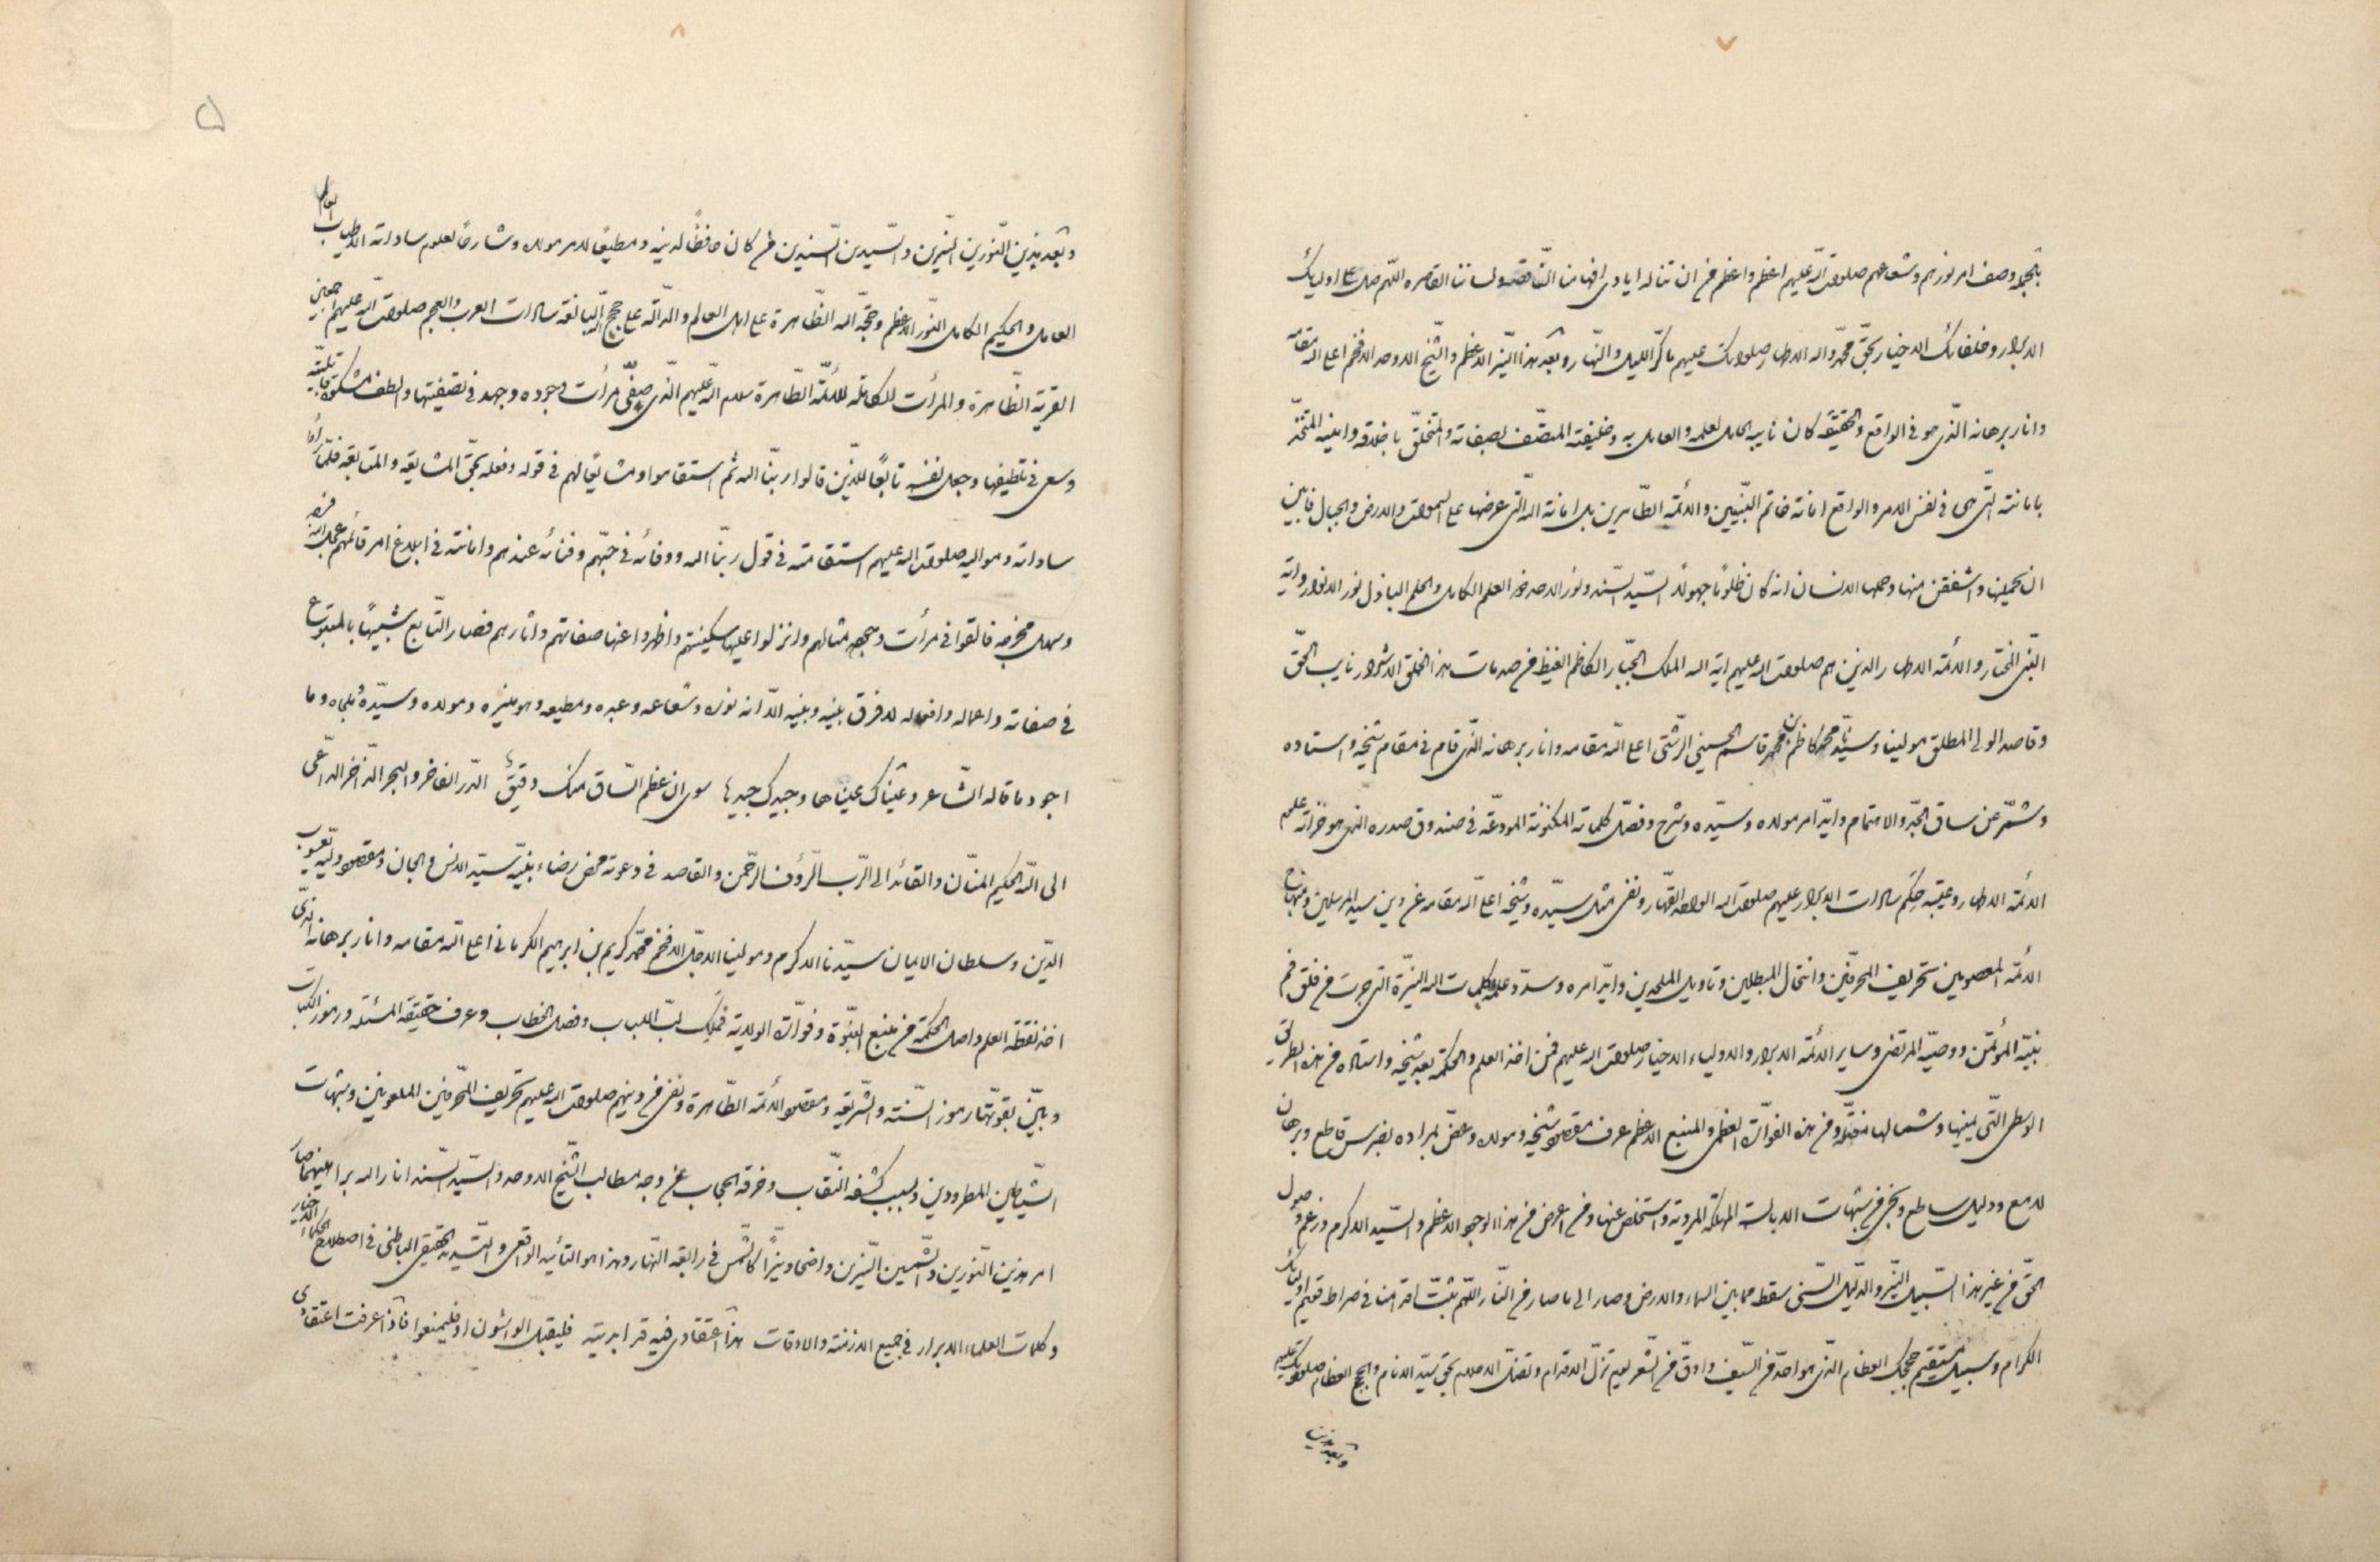 بالجملة وصف امر نورهم وشعاعهم صلوات الله عليهم اعظم واعظم من ان تناله ايادى افهامنا الناقصة ولساننا القاصره اللهم صل على اوليائك
الابرار وخلفائك الاخيار بحق محمد واله الاطهار صلواتك عليهم ما كر الليل والنهار وبعد هذا النير الاعظم والشيخ الاوحد الافخم اعلى الله مقامه
وانار برهانه الذى هو فى الواقع والحقيقة كان نايبه الحامل لعلمه والعامل به وخليفته المتصف بصفاته والمتخلق باخلاقه وامينه
بامانته التى هى فى نفس الامر والواقع امانة خاتم النبيين والائمة الطاهرين بل امانة الله التى عرضها على السموات والارض والجبال فابين
ان يحملنها واشفقن منها وحملها الانسان انه كان ظلوما جهولا السيد السند ونور الاحد العلم الكامل والحلم الباذل نور الانوار واية
النبى المختار والائمة الاطهار الذين هم صلوات الله عليهم اية الله الملك الجبار الكاظم الغيظ من صدمات هذا الخلق الاشرار نايب الحق
وقاصد الولى المطلق مولينا وسيدنا محمد كاظم بن محمد قاسم الحسينى الرشتى اعلى الله مقامه وانار برهانه الذى قام فى مقام شيخه واستاده
وشمر عن ساق الجد والاهتمام وايد امر مولاه وسيده وشرح وفصل كلماته المكنونة المودعة فى صندوق صدره الذى هو خزانة علم
الائمة الاطهار وعيبة حكم سادات الابرار عليهم صلوات الله الواحد القهار ونفى مثل سيده وشيخه اعلى الله مقامه عن دين سيد المرسلين ومنهاج
الائمة المعصومين تحريف المحرفين وانتحال المبطلين وتاويل الملحدين وايد امره وسدد علمه بكلمات الله النيرة التى جرت من فلق فم
نبيه المؤتمن ووصيه المرتضى وساير الائمة الابرار والاولياء الاخيار صلوات الله عليهم فمن اخذ العلم والحكمة بعد شيخه واستاده من هذه الطريق
الوسطى التى يمينها وشمالها مضلة ومن هذه الفوارة العظمى والمنبع الاعظم عرف مقصود شيخه ومولاه وعض بمراده بضرس قاطع وبرهان
لامع ودليل ساطع ونجى من شبهات الابالسة المهلكة المردية واستخلص عنها ومن اعرض من هذا الوجه الاعظم والسيد الاكرم وزعم وصول
الحق من غير هذا السبيل النير والدليل السنى سقط مما بين السماء والارض وصار الى ما صار من النار اللهم ثبت اقدامنا فى صراط قويم اوليائك
الكرام وسبيل مستقيم حججك العظام الذى هو احد من السيف وادق من الشعر يوم تزل الاقدام وتضل الاحلام بحق سيد الانام والحجج العظام صلواتك عليهم
وبعد هذين
۵
وبعد هذين النورين النيرين والسيدين السندين من كان حافظا لدينه ومطيعا لامر مولاه وشارحا لعلوم ساداته الاطياب العالم
العامل والحكيم الكامل النور الاعظم وحجة الله الظاهرة على اهل العالم والدالة على حجج الله البالغة سادات العرب والعجم صلوات الله عليهم اجمعين
القرية الظاهرة والمرأت الكاملة للائمة الطاهرة سلام الله عليهم الذى صفى مرأت وجوده وجهد فى تصفيتها ولطف مشكوة قابليته
وسعى فى تلطيفها وجعل نفسه تابعا للذين قالوا ربنا الله ثم استقاموا ومشايعا لهم فى قوله وفعله بحق المشايعة والمتابعة فلما رأوا
ساداته ومواليه صلوات الله عليهم استقامته فى قول ربنا الله ووفائه فى حبهم وفنائه عندهم وامانته فى ابلاغ امر قائمهم عجل الله فرجه
وسهل مخرجه فالقوا فى مرأت وجهه مثالهم وانزلوا عليها سكينتهم واظهروا عنها صفاتهم واثارهم فصار التابع شبيها بالمتبوع
فى صفاته واعماله وافعاله لا فرق بينه وبينه الا انه نوره وشعاعه وعبده ومطيعه وهو منيره ومولاه وسيده وملجاه وما
اجود ما قاله الشاعر وعيناك عيناها وجيدك جيدها سوى ان عظم الساق منك دقيق الدر الفاخر والبحر الذاخر الداعى
الى الله الحكيم المنان والقائد الى الرب الرؤف الرحمن والقاصد فى دعوته محض رضاء نبيه سيد الانس والجان ومقصود وليه يعسوب
الدين وسلطان الايمان سيدنا الاكرم ومولينا الاجل الافخم محمد كريم بن ابرهيم الكرمانى اعلى الله مقامه وانار برهانه الذى
اخذ نقطة العلم واصل الحكمة من منبع النبوة وفوارة الولاية فملك لب اللباب وفصل الخطاب وعرف حقيقة المسئلة ورموز الكتاب
وبين بقوتها رموز السنة والشريعة ومقصود الائمة الطاهرة ونفى من دينهم صلوات الله عليهم تحريف المحرفين الملعونين وشبهات
الشياطين المطرودين وبسبب كشفه النقاب وخرقه الحجاب عن وجه مطالب الشيخ الاوحد والسيد السند انار الله براهينهما صار
امر هذين النورين والشمسين النيرين واضحا ونيرا كالشمس فى رابعة النهار وهذا هو التأييد الواقعى والتسديد الحقيقى الباطنى فى اصطلاح الحكماء الاخيار
وكلمات العلماء الابرار فى جميع الازمنة والاوقات هذا اعتقادى فيه قد ابديته فليقبل الواشون او فليمنعوا فاذا عرفت اعتقادى